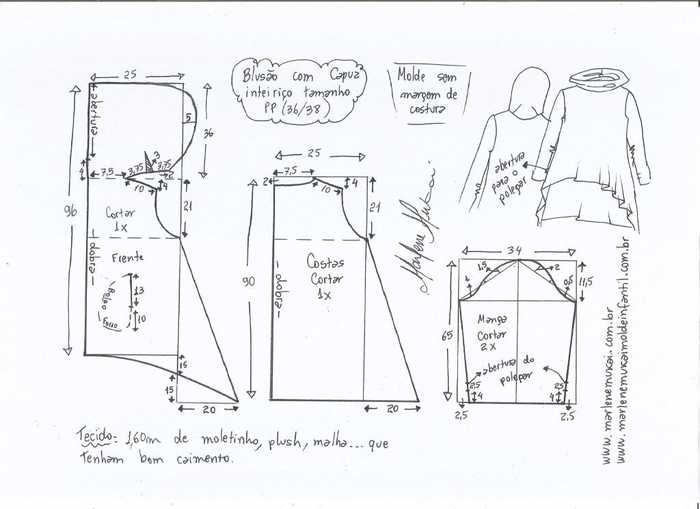 Blusão com Capuz
inteiriço tamanho
PP (36/38)
Molde sem
margem de
costura
25
abertura
5
36
3
7,5
3,75
3,75
4
10
4
96
Cortar
1x
21
dobra
Frente
Bolso
Forro
13
10
15
15
20
25
7,5
2
10
4
21
90
Costas
Cortar
1x
dobra
20
Marlene Mukai
abertura
para o
polegar
34
1,5
2
1
0,5
11,5
65
Manga
Cortar
2x
abertura do
polegar
25
4
25
4
2,5
2,5
www.marlenemukai.com.br
www.marlenemukaimoldeinfantil.com.br
Tecido: 1,60m de moletinho, plush, malha... que
tenham bom caimento.